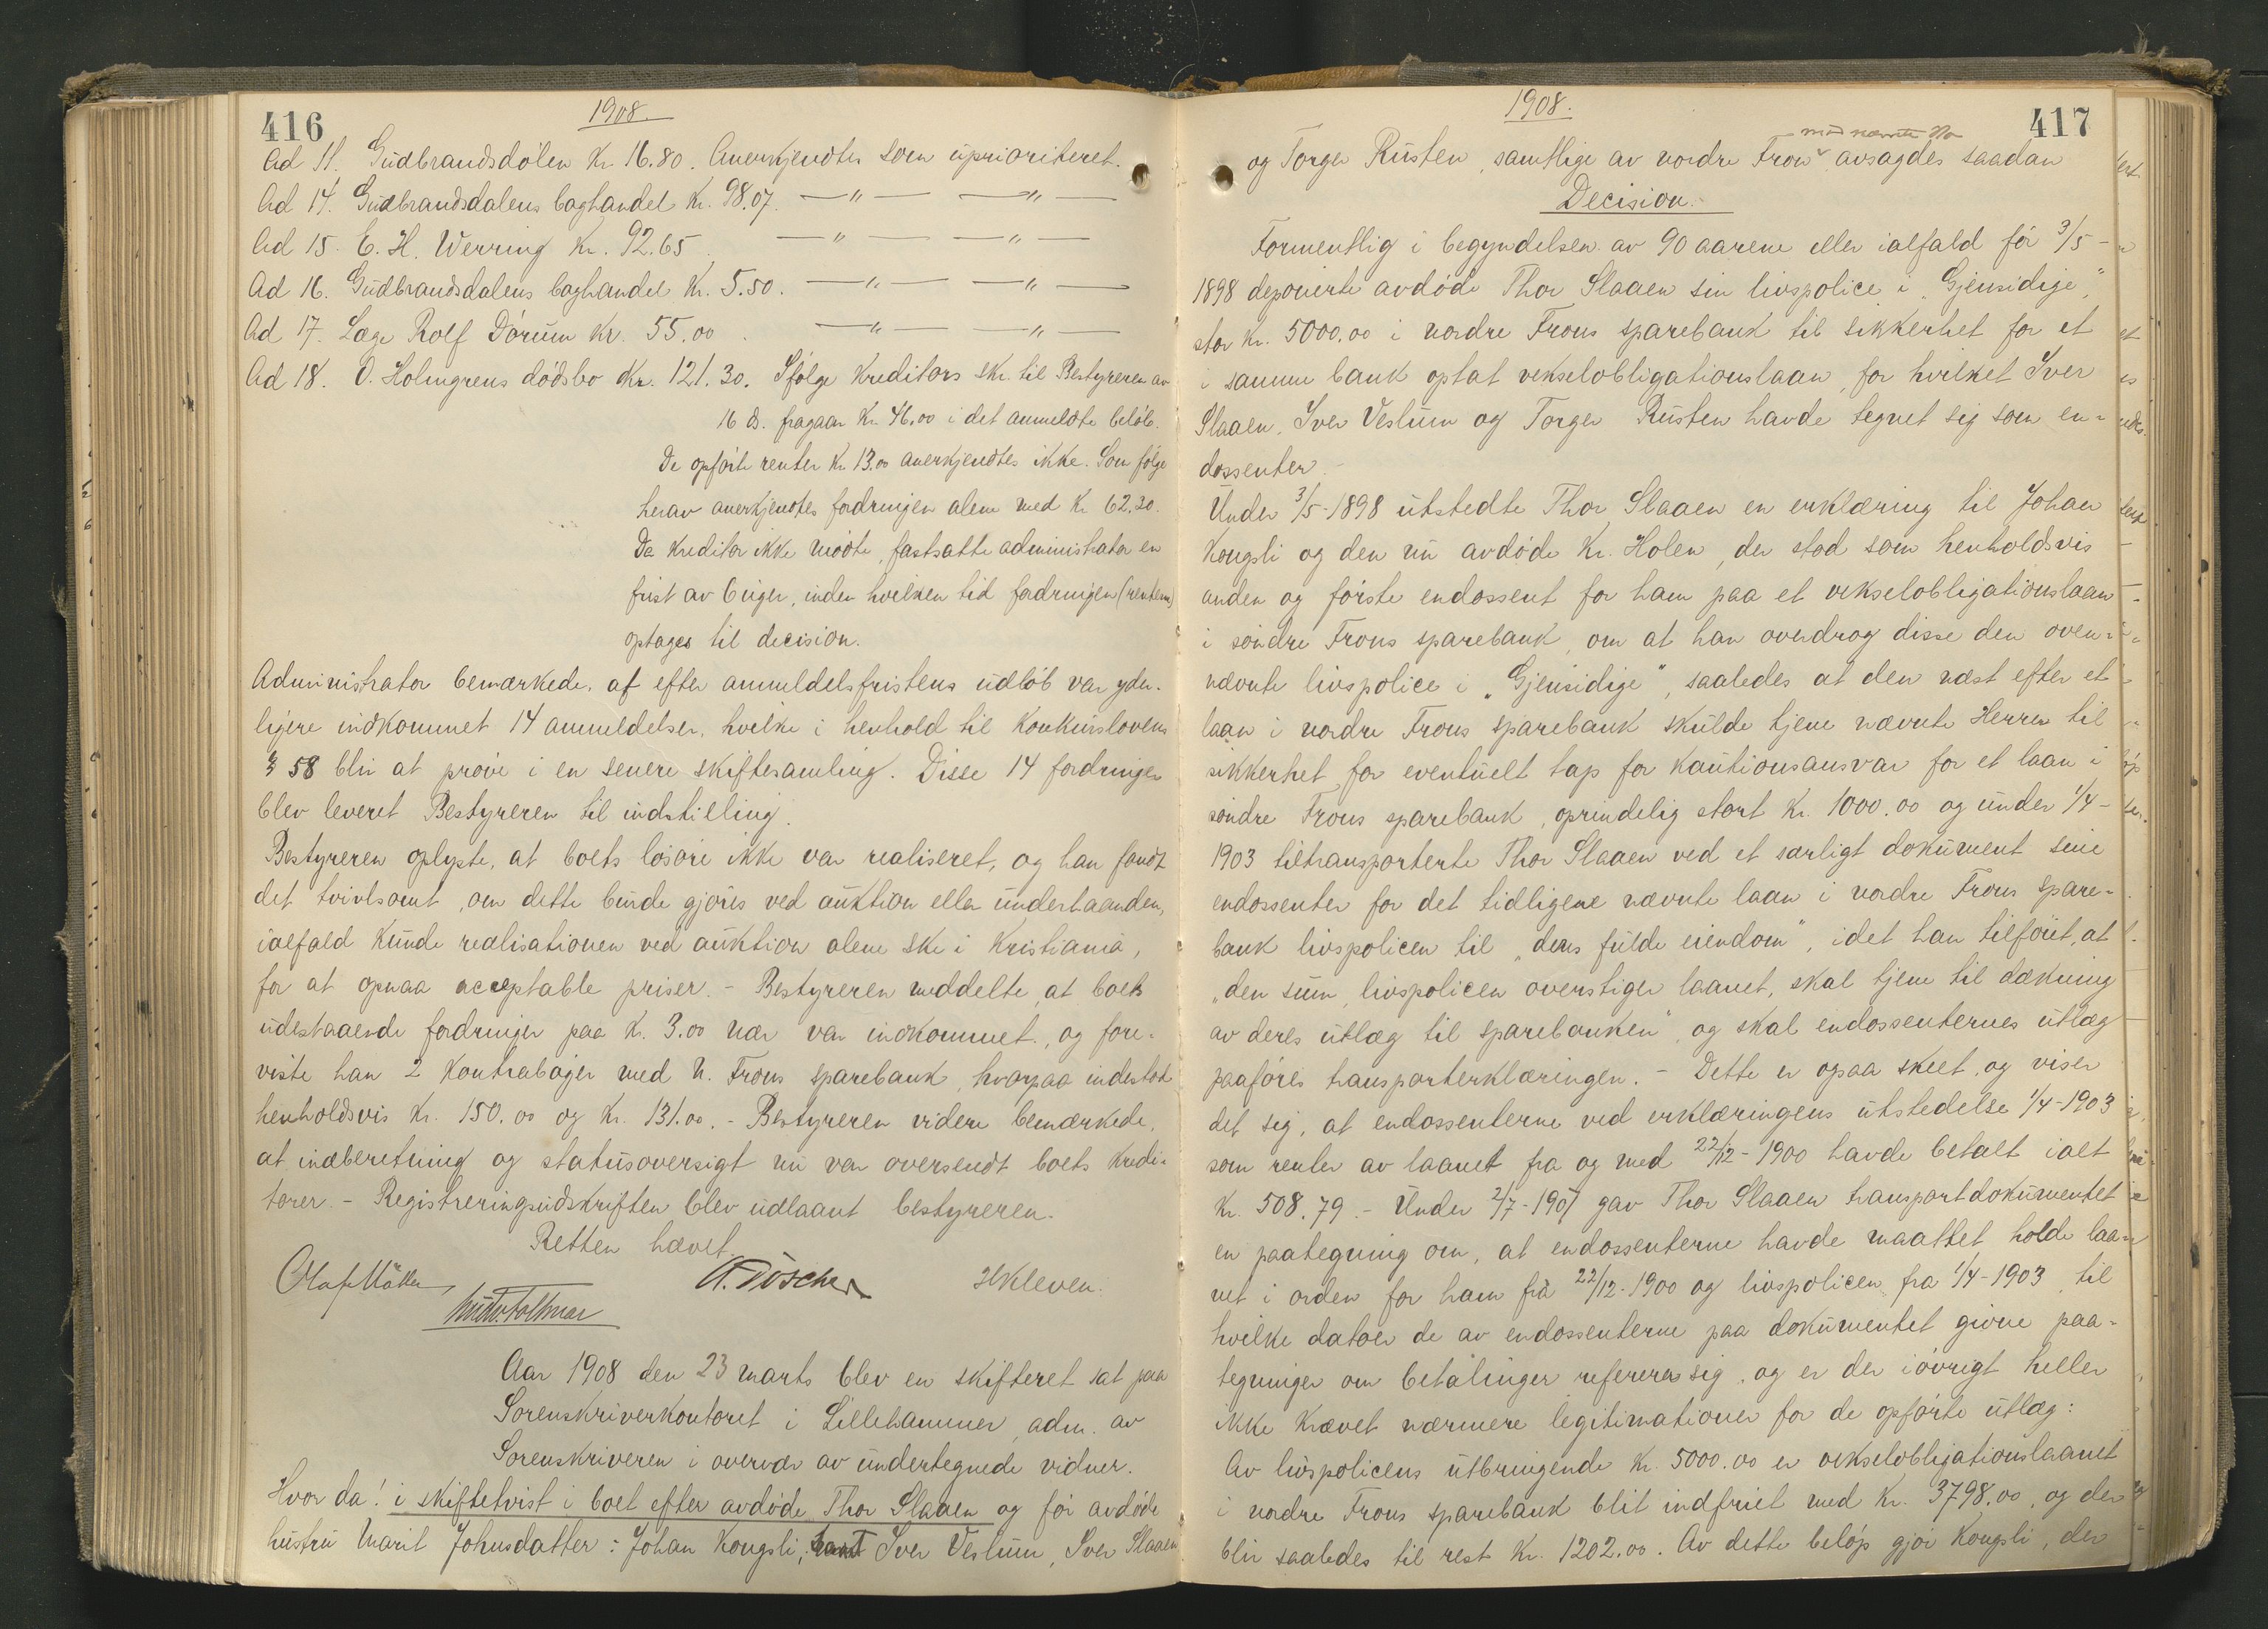 416
1908.
Ad 11. Gudbrandsdølen Kr. 16.80. Anerkjendtes som uprioriteret.
Ad 14. Gudbrandsdalens boghandel Kr. 98.07. — " — — " —
Ad 15. E. H. Werring Kr. 92.65 — " — — " —
Ad 16. Gudbrandsdalens boghandel Kr. 5.50. — " — — " —
Ad 17. Læge Rolf Dørum Kr. 55.00 — " — — " —
Ad 18. O. Holmgrens dødsbo Kr. 121.30. Ifølge Kreditors skr. til Bestyreren av
16 ds. fragaar Kr. 46.00 i det anmeldte beløb.
De opførte renter Kr 13.00 anerkjendtes ikke. Som følge
herav anerkjendtes fordringen alene med Kr 62.30.
Da Kreditor ikke mødte, fastsatte administrator en
frist av 6 uger, inden hvilken tid fordringen (renterne)
optages til decision.
Administrator bemærkede, at efter anmeldelsfristens udløb var yder-
ligere indkommet 14 anmeldelser, hvilke i henhold til Konkurslovens
§ 58 blir at prøve i en senere skiftesamling. Disse 14 fordringer
blev leveret Bestyreren til indstilling.
Bestyreren oplyste, at boets løsøre ikke var realiseret, og han fandt
det tvivlsomt, om dette burde gjøres ved auktion eller underhaanden,
ialfald kunde realisationen ved auktion alene ske i Kristiania,
for at opnaa acceptable priser. - Bestyreren meddelte, at boets
udestaaende fordringer paa K. 3.00 nær var indkommet, og fore-
viste han 2 Kontrabøger med N. Frons sparebank, hvorpaa indestod
henholdsvis Kr. 150.00 og Kr. 131.00. - Bestyreren videre bemærkede,
at indberetning og statusoversigt nu var oversendt boets Kredi-
torer. - Registreringsudskriften blev udlaant bestyreren.
Retten hævet.
Olaf Møller H Kleven.
Aar 1908 den 23 marts blev en skifteret sat paa
Sorenskriverkontoret i Lillehammer, adm. av
Sorenskriveren i overvær av undertegnede vidner.
Hvor da! i skiftetvist i boet efter avdøde Thor Slaaen og før avdøde
hustru Marit Johnsdatter: Johan Kongsli, Iver Veslum, Iver Slaaen
417
1908.
med nævnte Bo
og Torger Rusten, samtlige av nordre Fron avsagdes saadan
Decision.
Formentlig i begyndelsen av 90 aarene eller ialfald før 3/5-
1898 deponerte avdøde Thor Slaaen sin livspolice i "Gjensidige",
stor Kr. 5000.00 i nordre Frons sparebank til sikkerhet for et
i samme bank optat vekselobligationslaan, for hvilket Iver
Slaaen, Iver Veslum og Torger Rusten havde tegnet sig som en-
dossenter.
Under 3/5-1898 utstedte Thor Slaaen en erklæring til Johan
Kongsli og den nu avdøde Kr. Holen, der stod som henholdsvis
anden og første endossent for ham paa et vekselobligationslaan
i søndre Frons sparebank, om at han overdrog disse den oven-
nævnte livspolice i "Gjensidige", saaledes at den næst efter et
laan i nordre Frons sparebank skulde tjene nævnte Herrer til
sikkerhet for eventuelt tap for kautionsansvar for et laan i
søndre Frons sparebank, oprindelig stort Kr. 1000.00 og under 1/4-
1903 tiltransporterte Thor Slaaen ved et særligt dokument sine
endossenter for det tidligere nævnte laan i nordre Frons spare-
bank livspolicen til "deres fulde eiendom", idet han tilføiet, at
"den sum, livspolicen overstiger laanet, skal tjene til dækning
av deres utlæg til sparebanken", og skal endossenternes utlæg
paaføres transporterklæringen. - Dette er ogsaa skeet, og viser
det sig, at endossenterne ved erklæringens utstedelse 1/4-1903
som renter av laanet fra og med 22/12-1900 havde betalt ialt
Kr. 508.79. - Under 2/7-1907 gav Thor Slaaen transportdokumentet
en paategning om, at endossenterne havde maattet holde laa-
net i orden for ham fra 22/12-1900 og livspolicen fra 1/4-1903, til
hvilke datoer de av endossenterne paa dokumentet givne paa-
tegninger om betalinger refererer sig, og er der iøvrigt heller
ikke krævet nærmere legitimationer for de opførte utlæg:
Av livspolicens utbringende Kr. 5000.00 er vekselobligationslaanet
i nordre Frons sparebank blit indfriet med Kr. 3798.00, og der
blir saaledes til rest Kr. 1202.00. Av dette beløp gjør Kongsli, der